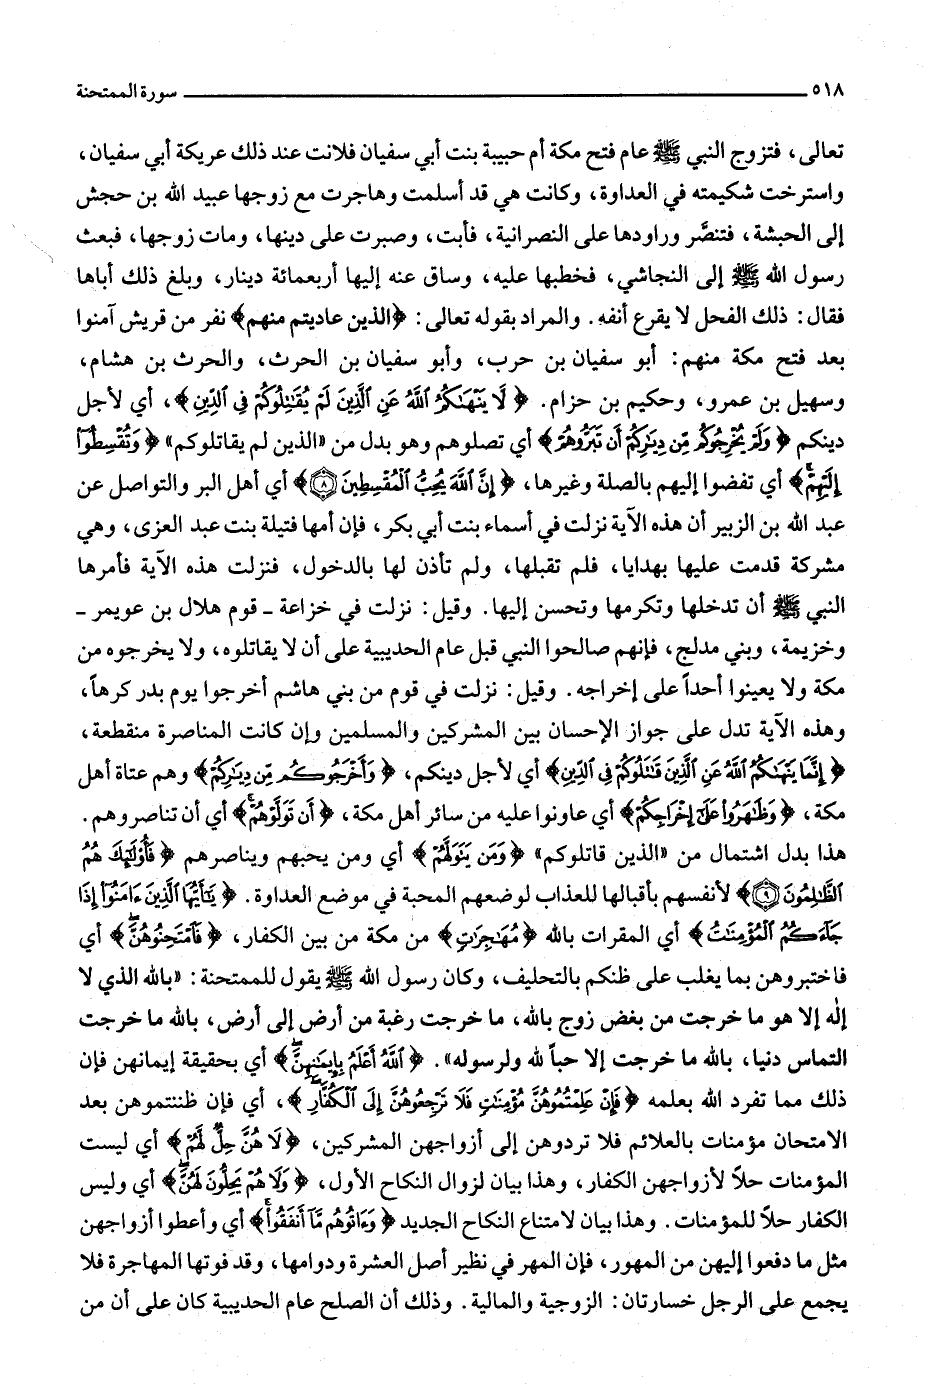 ٥١٨ سورة الممتحنة
تعالى، فتزوج النبي ﷺ عام فتح مكة أم حبيبة بنت أبي سفيان فلانت عند ذلك عريكة أبي سفيان،
واسترخت شكيمته في العداوة، وكانت هي قد أسلمت وهاجرت مع زوجها عبيد الله بن جحش
إلى الحبشة، فتنصَّر وراودها على النصرانية، فأبت، وصبرت على دينها، ومات زوجها، فبعث
رسول الله ﷺ إلى النجاشي، فخطبها عليه، وساق عنه إليها أربعمائة دينار، وبلغ ذلك أباها
فقال: ذلك الفحل لا يقرع أنفه. والمراد بقوله تعالى: ﴿الذين عاديتم منهم﴾ نفر من قريش آمنوا
بعد فتح مكة منهم: أبو سفيان بن حرب، وأبو سفيان بن الحرث، والحرث بن هشام،
وسهيل بن عمرو، وحكيم بن حزام. ﴿لَّا يَنْهَىٰكُمُ ٱللَّهُ عَنِ ٱلَّذِينَ لَمْ يُقَٰتِلُوكُمْ فِي ٱلدِّينِ﴾، أي لأجل
دينكم ﴿وَلَمْ يُخْرِجُوكُم مِّن دِيَٰرِكُمْ أَن تَبَرُّوهُمْ﴾ أي تصلوهم وهو بدل من «الذين لم يقاتلوكم» ﴿وَتُقْسِطُوٓا۟
إِلَيْهِمْ﴾ أي تفضوا إليهم بالصلة وغيرها، ﴿إِنَّ ٱللَّهَ يُحِبُّ ٱلْمُقْسِطِينَ ٨﴾ أي أهل البر والتواصل عن
عبد الله بن الزبير أن هذه الآية نزلت في أسماء بنت أبي بكر، فإن أمها قتيلة بنت عبد العزى، وهي
مشركة قدمت عليها بهدايا، فلم تقبلها، ولم تأذن لها بالدخول، فنزلت هذه الآية فأمرها
النبي ﷺ أن تدخلها وتكرمها وتحسن إليها. وقيل: نزلت في خزاعة ـ قوم هلال بن عويمر ـ
وخزيمة، وبني مدلج، فإنهم صالحوا النبي قبل عام الحديبية على أن لا يقاتلوه، ولا يخرجوه من
مكة ولا يعينوا أحداً على إخراجه. وقيل: نزلت في قوم من بني هاشم أخرجوا يوم بدر كرهاً،
وهذه الآية تدل على جواز الإحسان بين المشركين والمسلمين وإن كانت المناصرة منقطعة،
﴿إِنَّمَا يَنْهَىٰكُمُ ٱللَّهُ عَنِ ٱلَّذِينَ قَٰتَلُوكُمْ فِي ٱلدِّينِ﴾ أي لأجل دينكم، ﴿وَأَخْرَجُوكُم مِّن دِيَٰرِكُمْ﴾ وهم عتاة أهل
مكة، ﴿وَظَٰهَرُوا۟ عَلَىٰٓ إِخْرَاجِكُمْ﴾ أي عاونوا عليه من سائر أهل مكة، ﴿أَن تَوَلَّوْهُمْ﴾ أي أن تناصروهم.
هذا بدل اشتمال من «الذين قاتلوكم» ﴿وَمَن يَتَوَلَّهُمْ﴾ أي ومن يحبهم ويناصرهم ﴿فَأُو۟لَٰٓئِكَ هُمُ
ٱلظَّٰلِمُونَ ٩﴾ لأنفسهم بأقبالها للعذاب لوضعهم المحبة في موضع العداوة. ﴿يَٰٓأَيُّهَا ٱلَّذِينَ ءَامَنُوٓا۟ إِذَا
جَآءَكُمُ ٱلْمُؤْمِنَٰتُ﴾ أي المقرات بالله ﴿مُهَٰجِرَٰتٍ﴾ من مكة من بين الكفار، ﴿فَٱمْتَحِنُوهُنَّ﴾ أي
فاختبروهن بما يغلب على ظنكم بالتحليف، وكان رسول الله ﷺ يقول للممتحنة: «بالله الذي لا
إله إلا هو ما خرجت من بغض زوج بالله، ما خرجت رغبة من أرض إلى أرض، بالله ما خرجت
التماس دنيا، بالله ما خرجت إلا حباً لله ولرسوله». ﴿ٱللَّهُ أَعْلَمُ بِإِيمَٰنِهِنَّ﴾ أي بحقيقة إيمانهن فإن
ذلك مما تفرد الله بعلمه ﴿فَإِنْ عَلِمْتُمُوهُنَّ مُؤْمِنَٰتٍ فَلَا تَرْجِعُوهُنَّ إِلَى ٱلْكُفَّارِ﴾، أي فإن ظننتموهن بعد
الامتحان مؤمنات بالعلائم فلا تردوهن إلى أزواجهن المشركين، ﴿لَا هُنَّ حِلٌّ لَّهُمْ﴾ أي ليست
المؤمنات حلاً لأزواجهن الكفار، وهذا بيان لزوال النكاح الأول، ﴿وَلَا هُمْ يَحِلُّونَ لَهُنَّ﴾ أي وليس
الكفار حلاً للمؤمنات. وهذا بيان لامتناع النكاح الجديد ﴿وَءَاتُوهُم مَّآ أَنفَقُوا۟﴾ أي وأعطوا أزواجهن
مثل ما دفعوا إليهن من المهور، فإن المهر في نظير أصل العشرة ودوامها، وقد فوتها المهاجرة فلا
يجمع على الرجل خسارتان: الزوجية والمالية. وذلك أن الصلح عام الحديبية كان على أن من